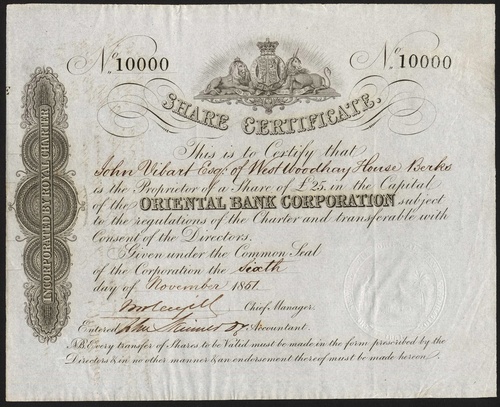 No. 10000
No. 10000
SHARE CERTIFICATE.
INCORPORATED BY ROYAL CHARTER
This is to Certify that
John Vibart Esqr. of West Woodhay House Berks
is the Proprietor of a Share of £25, in the Capital
of the ORIENTAL BANK CORPORATION subject
to the regulations of the Charter and transferable with
Consent of the Directors.
Given under the Common Seal
of the Corporation the Sixth
day of November 1861
Chief Manager.
Entered Accountant.
N.B. Every transfer of Shares to be Valid must be made in the form prescribed by the
Directors & in no other manner & an endorsement thereof must be made hereon.